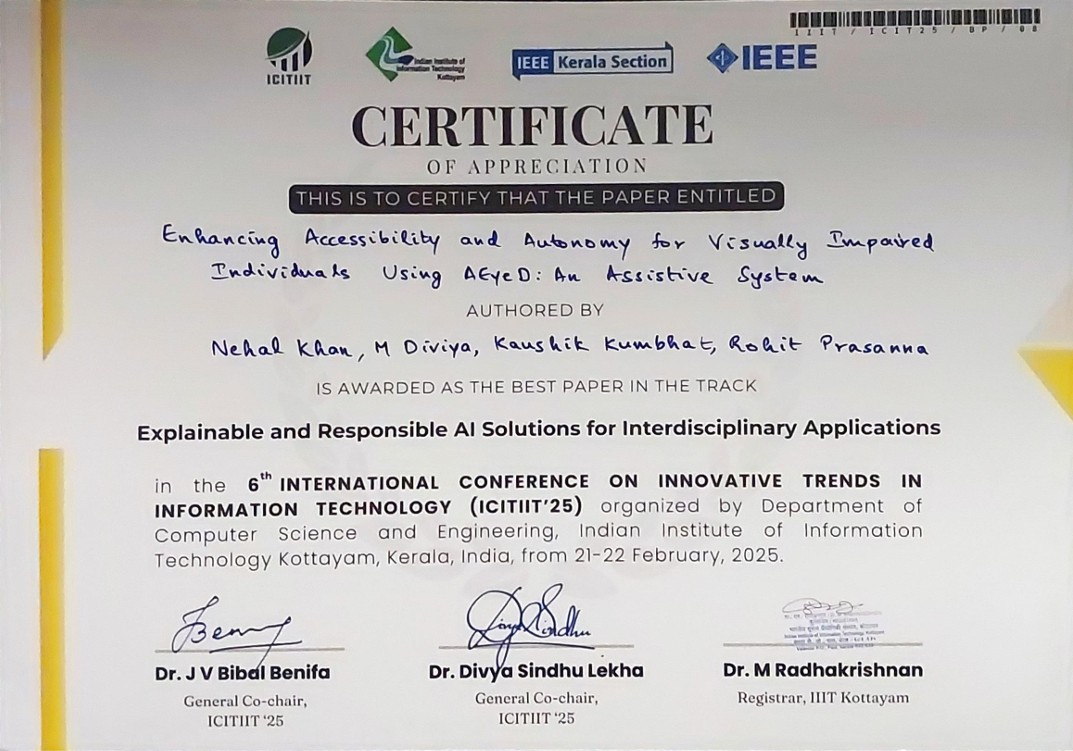 IIIT / ICIT25 / BP / 08
ICITIIT
Indian Institute of
Information Technology
Kottayam
IEEE Kerala Section
IEEE
CERTIFICATE
OF APPRECIATION
THIS IS TO CERTIFY THAT THE PAPER ENTITLED
Enhancing Accessibility and Autonomy for Visually Impaired
Individuals Using AEyeD: An Assistive System
AUTHORED BY
Nehal Khan, M Diviya, Kaushik Kumbhat, Rohit Prasanna
IS AWARDED AS THE BEST PAPER IN THE TRACK
Explainable and Responsible AI Solutions for Interdisciplinary Applications
in the 6th INTERNATIONAL CONFERENCE ON INNOVATIVE TRENDS IN
INFORMATION TECHNOLOGY (ICITIIT'25) organized by Department of
Computer Science and Engineering, Indian Institute of Information
Technology Kottayam, Kerala, India, from 21-22 February, 2025.
Dr. J V Bibal Benifa
General Co-chair,
ICITIIT '25
Dr. Divya Sindhu Lekha
General Co-chair,
ICITIIT '25
Dr. M Radhakrishnan
Registrar, IIIT Kottayam